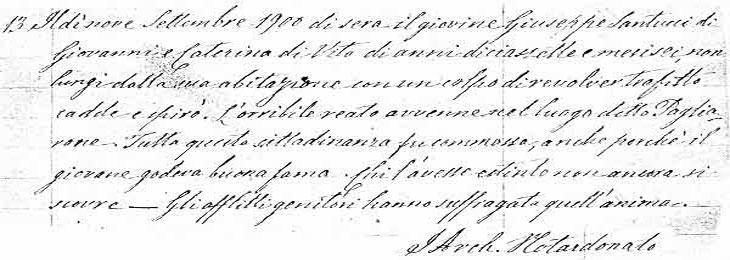 13 Il dì nove Settembre 1900 di sera il giovine Giuseppe Santucci di
Giovanni e Caterina di Vito di anni diciassette e mesi sei, non
lungi dalla sua abitazione con un colpo di revolver trafitto
cadde e spirò. L'orribile reato avvenne nel luogo detto Taglia-
rone. Tutta questa cittadinanza fu commossa, anche perchè il
giovane godeva buona fama. Chi l'avesse estinto non ancora si
scovre — Gli afflitti genitori hanno suffragato quell'anima.
J Arch. Notardonato